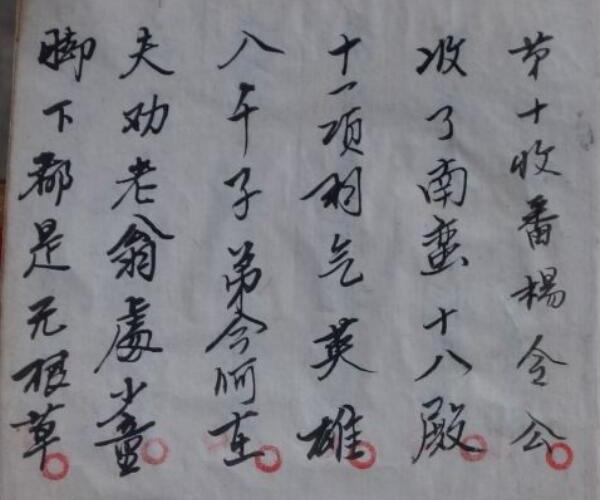 苐十收番楊令公
收了南蛮十八殿
十一项羽气英雄
八千子弟今何在
夫劝老翁處小
脚下都是无根草